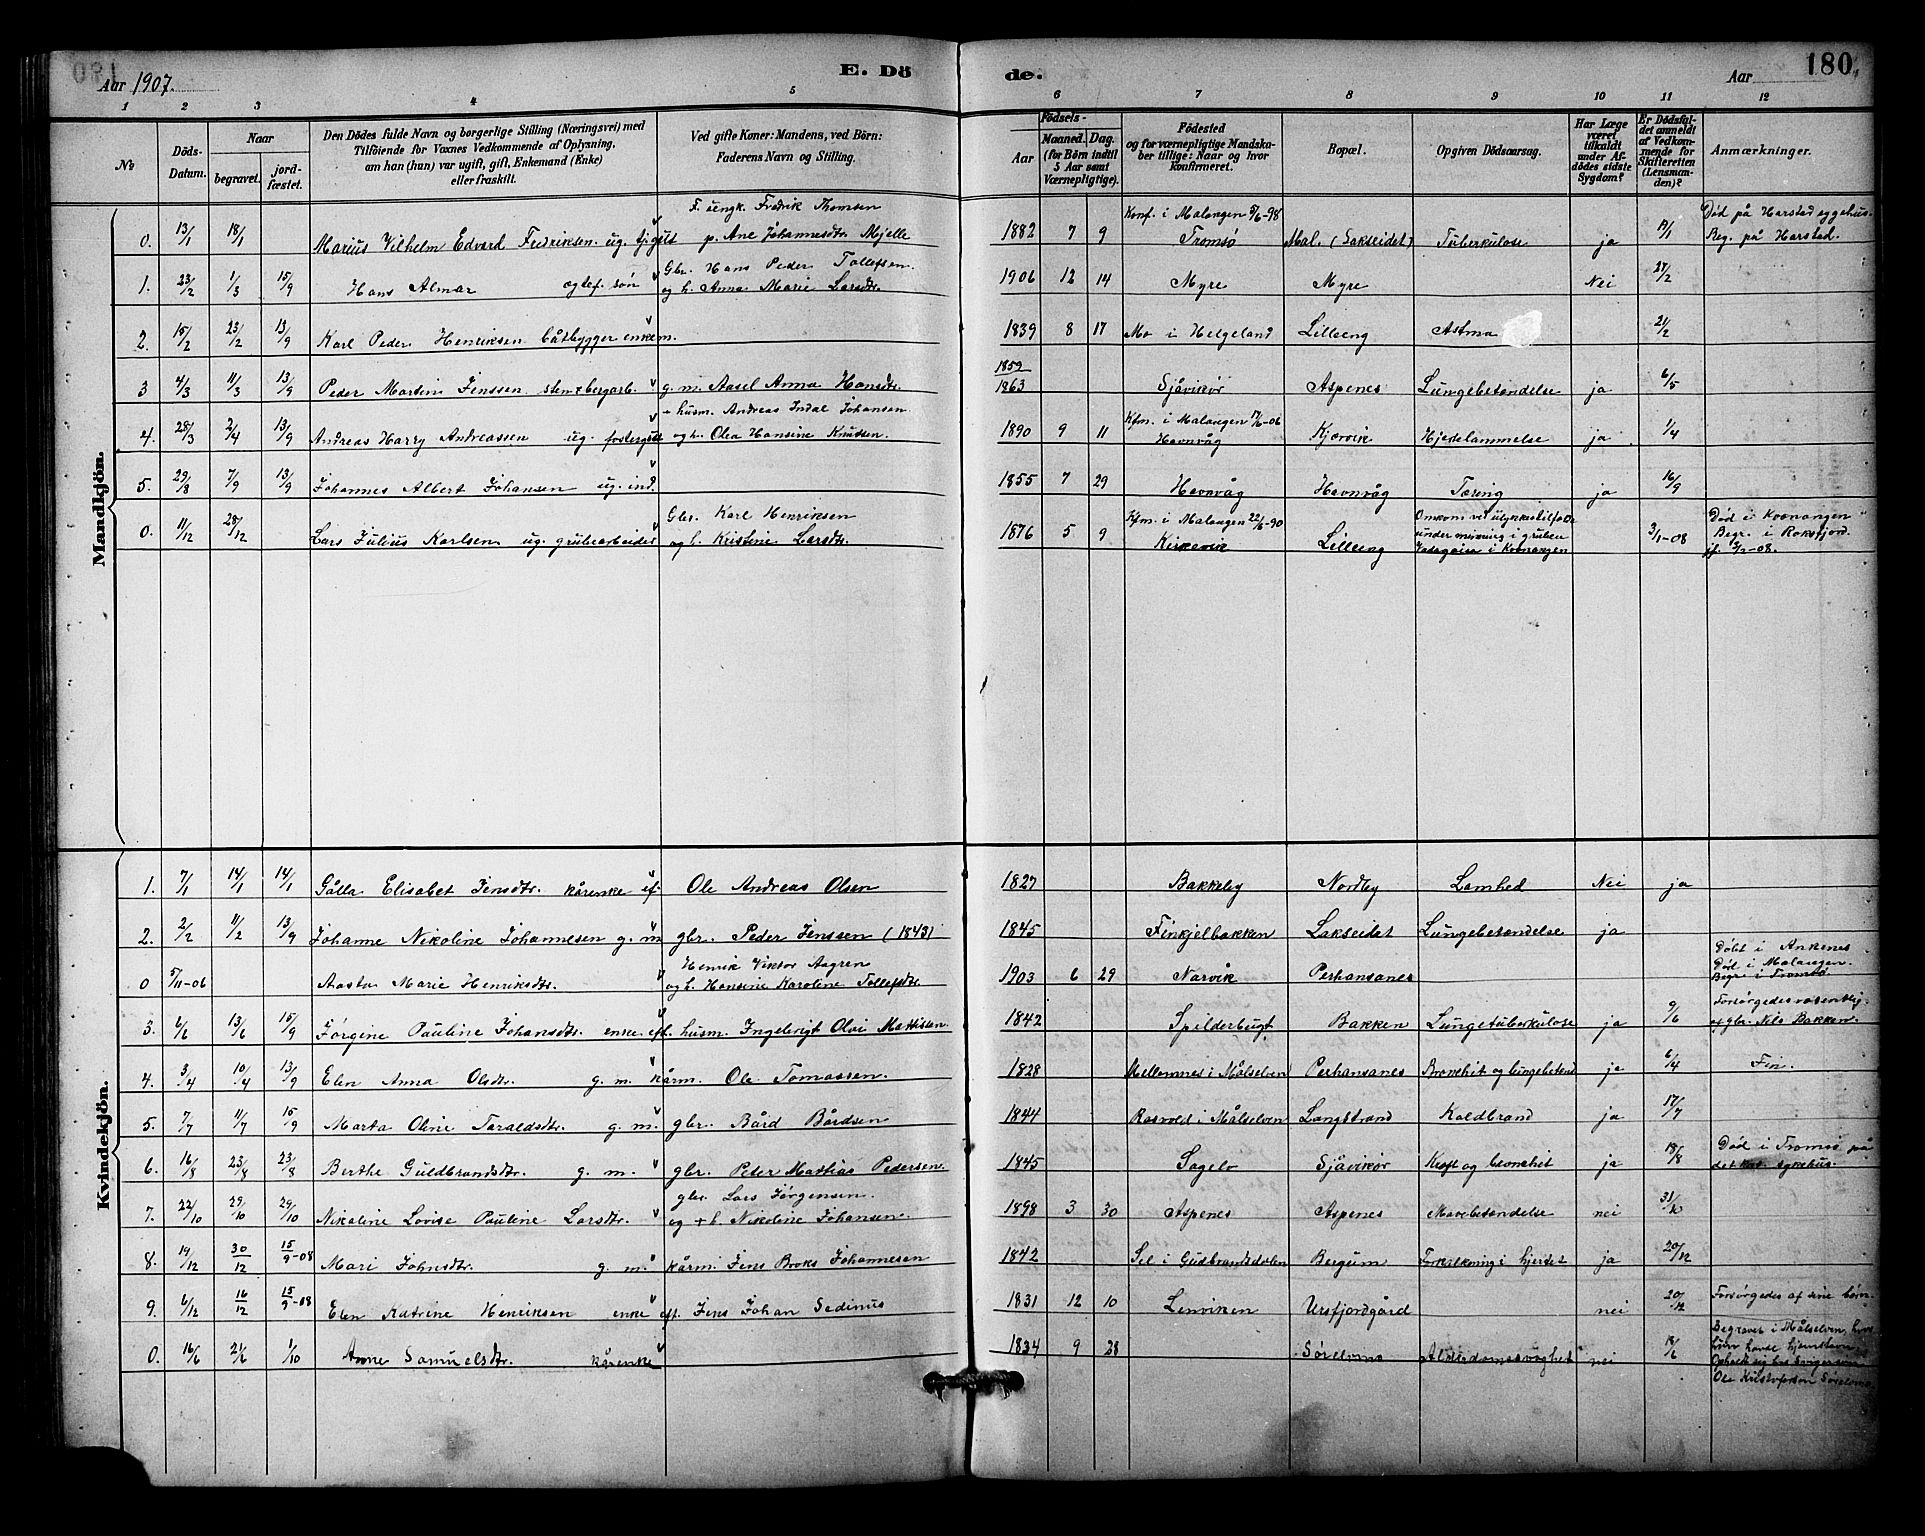 Aar 1907. E. Dö de. Aar 180.
1 2 3 4 5 6 7 8 9 10 11 12
No
Döds-Datum.
Naar
begravet.
jord-fæstet.
Den Dödes fulde Navn og borgerlige Stilling (Næringsvei) med
Tilföiende for Voxnes Vedkommende af Oplysning,
om han (hun) var ugift, gift, Enkemand (Enke)
eller fraskilt.
Ved gifte Koner: Mandens, ved Börn:
Faderens Navn og Stilling.
Födsels-
Aar
Maaned. Dag.
(for Börn indtil
5 Aar samt
Værnepligtige).
Födested
og for værnepligtige Mandska-
ber tillige: Naar og hvor
Konfirmeret.
Bopæl.
Opgiven Dödsaarsag.
Har Læge
været
tilkaldt
under Af-
dödes sidste
Sygdom?
Er Dödsfal-
det anmeldt
af Vedkom-
mende for
Skifteretten
(Lensman-
den)?
Anmærkninger.
Mandkjön.
F. ungk. Fredrik Thomsen Konf. i Malangen 5/6-98 Død på Harstad sygehus.
0. 13/1 18/1 Marius Vilhelm Edvard Fedriksen ug. p. Ane Johannesdtr. Mjelle 1882 7 9 Tromsø Mal. (Sakseidet) Tuberkulose ja 17/1 Beg. på Harstad.
Gbr. Hans Peder Tollefsen
1. 23/2 1/3 15/9 Hans Almar ægtef. søn og h. Anna Marie Larsdtr. 1906 12 14 Myre Myre Nei 27/2
2. 15/2 23/2 13/9 Karl Peder Henriksen båtbygger enkem. 1839 8 17 Mo i Helgeland Lilleng Astma 21/2
1859
3 4/3 11/3 13/9 Peder Martin Jenssen sten & bergarb. g. m. Aasel Anna Hansdtr. 1863 Sjåvikør Aspenes Lungebetændelse ja 6/5
+ husm. Andreas Indal Johansen Kfm. i Malangen 17/6-06
4. 28/3 2/4 13/9 Andreas Harry Andreassen ug. fostergut og h. Olea Hansine Knutsen. 1890 9 11 Havnvåg Kjærvik Hjertelammelse ja 1/4
5. 29/8 7/9 13/9 Johannes Albert Johansen ug. ind. 1855 7 29 Havnvåg Havnvåg Tæring ja 16/9
Gbr. Karl Henriksen Kfm. i Malangen 22/6-90 Omkom ved ulykkestilfælde Død i Kvænangen
0. 11/12 28/12 Lars Julius Karlsen ug. grubearbeider og h. Kristine Larsdtr. 1876 5 9 Kirkevik Lilleng under minning i gruben i Kvænangen 3/1-08 Begr. i Roksfjord.
Kvindekjön.
1. 7/1 14/1 14/1 Gålla Elisabet Jensdtr. kårenke ef. Ole Andreas Olsen 1827 Bakkeby Nordby Lamhed Nei ja
2. 2/2 11/2 13/9 Johanne Nikoline Johannesen g. m. gbr. Peder Jenssen (1843) 1845 Finkjelbakken Sakseidet Lungebetændelse ja
Henrik Viktor Aagren Døbt i Ankenes Død i Malangen.
0 5/11-06 Aasta Marie Henriksdtr. og h. Hansine Karoline Tollefsdtr. 1903 6 29 Narvik Perhansanes Begr. i Tromsø
3. 6/6 13/6 15/9 Jørgine Pauline Johansdtr. enke eft. husm. Ingebrigt Olai Mattisen. 1842 Spilderbugt Bakken Lungetuberkulose ja 9/6 Forsørgedes væsentlig af gbr. Nils Bakken.
4. 3/4 10/4 13/9 Elen Anna Olsdtr. g. m. kårm. Ole Tomassen. 1828 Mellemnes i Målselven Perhansanes Bronchit og lungebetænd ja 6/4 Fin.
5. 7/7 11/7 15/9 Marta Oline Taraldsdtr. g. m. gbr. Bård Bårdsen 1844 Rasvold i Målselven Langstrand Koldbrand ja 17/7
6. 16/8 23/8 23/8 Berthe Guldbrandsdtr. g. m. gbr. Peder Mattias Pedersen 1845 Sagelv Sjåvikør Kræft og bronchit ja 18/8 Død i Tromsø på det kat. sykehus.
gbr. Lars Jørgensen
7. 22/10 29/10 29/10 Nikoline Lovise Pauline Larsdtr. og + h. Nikoline Johansen. 1898 3 30 Aspenes Aspenes Mavebetændelse nei 31/10
8. 19/12 30/12 15/9-08 Mari Johnsdtr. g. m. kårm. Jens Broks Johannesen 1842 Sel i Gudbrandsdalen Bergum Forkalkning i hjertet ja 20/12
9. 6/12 16/12 15/9-08 Elen Katrine Henriksen enke eft. Jens Johan Sedinus 1831 12 10 Lenviken Ursfjordgård nei 20/12 Forsørgedes af sine børn.
0. 16/6 21/6 1/10 Anne Samuelsdtr. kårenke 1834 9 28 Sørelvmo Alderdomssvaghet nei 18/6 Begravet i Målselven, hvor
hun havde hjemstavn
Opholdt sig hos svigersøn
Ole Kristofersen Sørelvmo